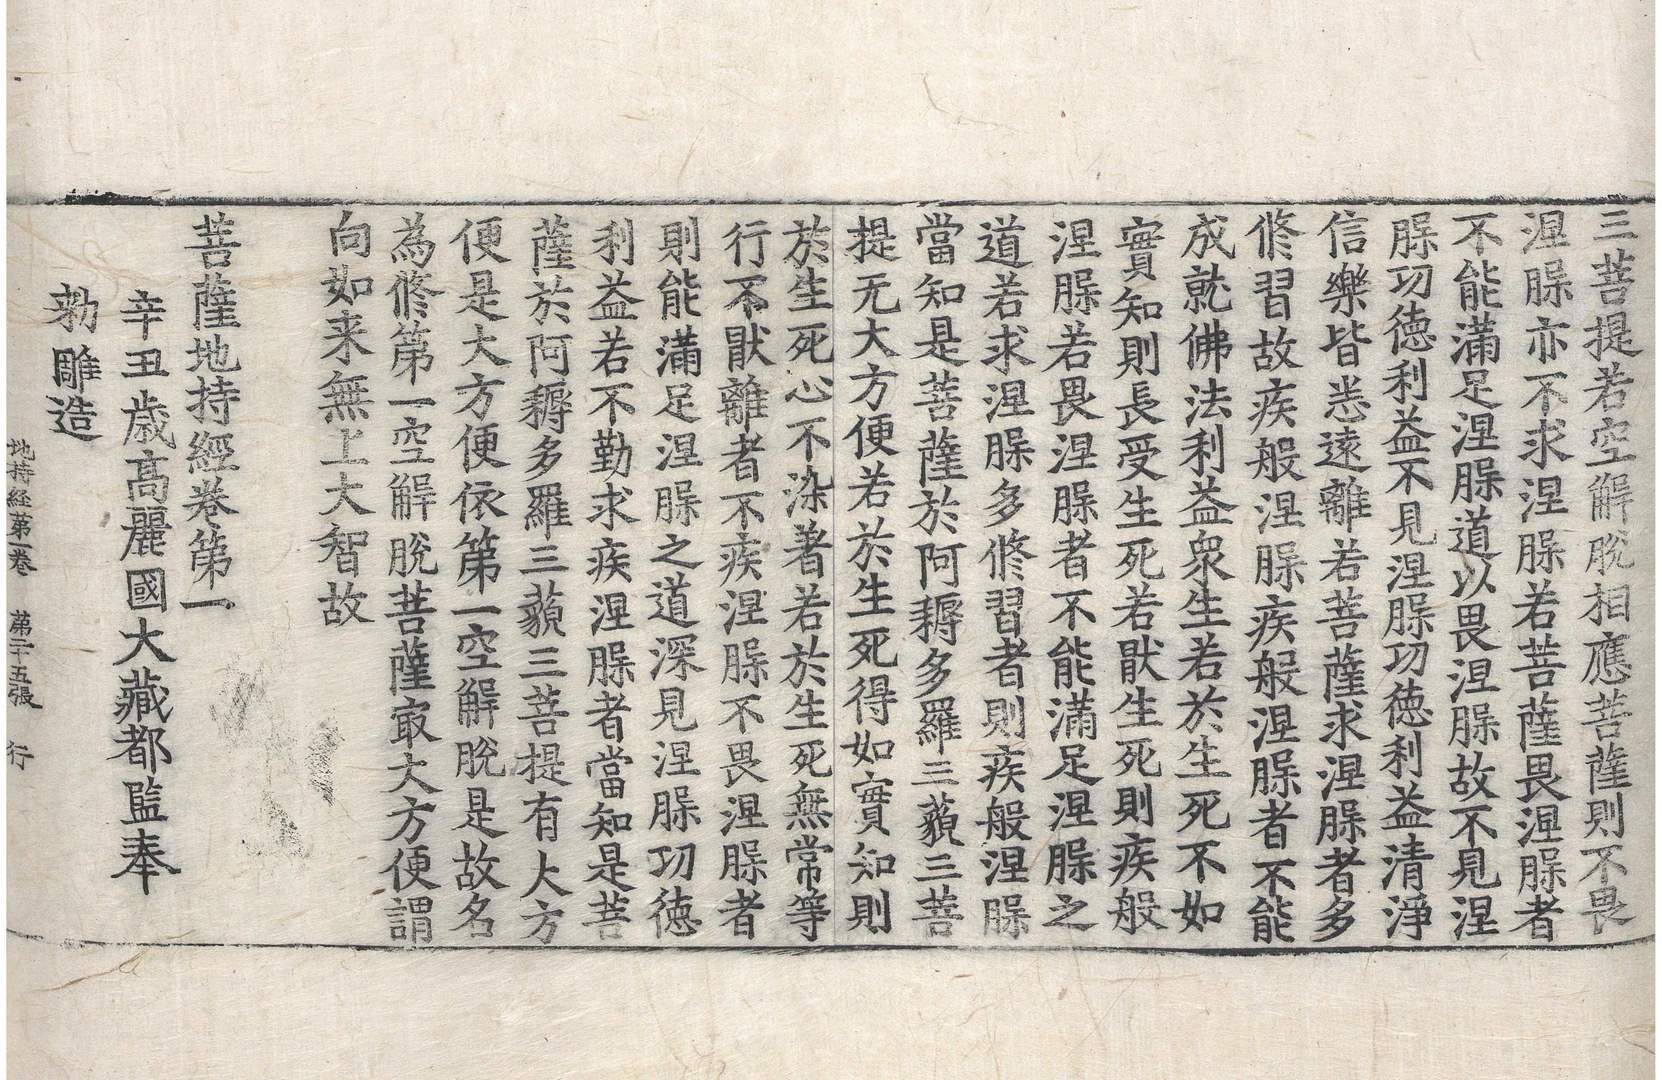 三菩提若空解脫相應菩薩則不畏
涅槃亦不求涅槃若菩薩畏涅槃者
不能滿足涅槃道以畏涅槃故不見涅
槃功德利益不見涅槃功德利益清淨
信樂皆悉遠離若菩薩求涅槃者多
修習故疾般涅槃疾般涅槃者不能
成就佛法利益衆生若於生死不如
實知則長受生死若猒生死則疾般
涅槃若畏涅槃者不能滿足涅槃之
道若求涅槃多修習者則疾般涅槃
當知是菩薩於阿耨多羅三藐三菩
提无大方便若於生死得如實知則
於生死心不染著若於生死無常等
行不猒離者不疾涅槃不畏涅槃者
則能滿足涅槃之道深見涅槃功德
利益若不勤求疾涅槃者當知是菩
薩於阿耨多羅三藐三菩提有大方
便是大方便依第一空解脫是故名
為修第一空解脫菩薩㝡大方便謂
向如来無上大智故
菩薩地持經卷第一
辛丑歲高麗國大藏都監奉
勑雕造
地持経第一卷 第二十五張 行